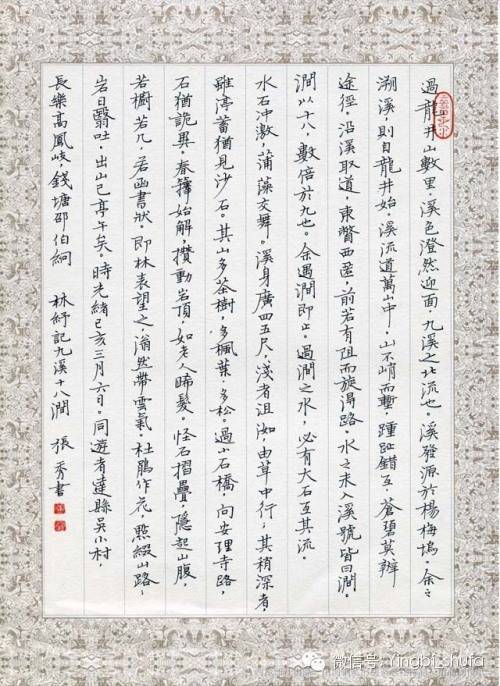 過龍井山數里，溪色澄然迎面，九溪之北流也。溪發源於楊梅塢。余之
溯溪，則自龍井始。溪流道萬山中，山不峭而塹，踵趾錯互，蒼碧莫辨
途徑。沿溪取道，東瞥西匿，前若有阻而旋得路。水之未入溪號皆曰澗。
澗以十八，數倍於九也。余遇澗即止。過澗之水，必有大石互其流。
水石冲激，蒲藻交舞。溪身廣四五尺，淺者沮洳，由草中行；其稍深者，
雖渟蓄猶見沙石。其山多茶樹，多楓葉，多松。過小石橋，向安理寺路，
石猶詭異。春籜始解，攢動岩頂，如老人晞髮。怪石摺疊，隱起山腹，
若櫥若几，若函書狀。即林表望之，滃然帶雲氣。杜鵑作花，點綴山路，
岩日翳吐，出山已亭午矣。時光緒己亥三月六日。同遊者達縣吳小村，
長樂高鳳岐，錢塘邵伯絅 林紓記九溪十八澗 張秀書
微信号: Yingbi_shufa